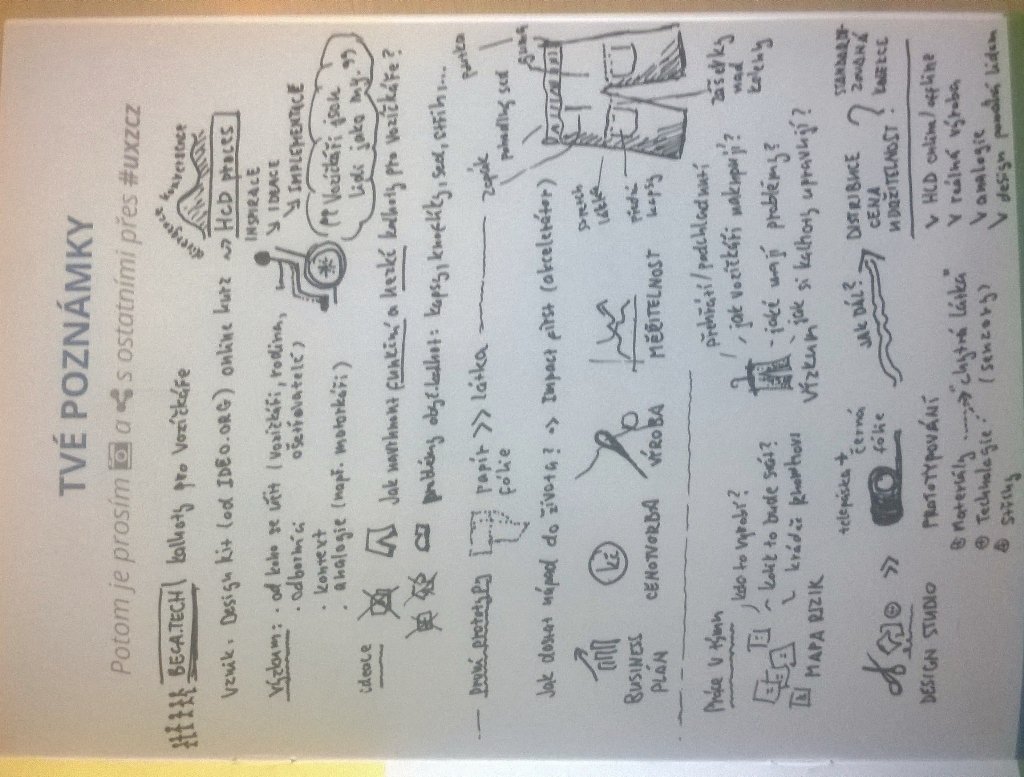 TVÉ POZNÁMKY
Potom je prosím a s ostatními přes #uxzcz
BEGA.TECH kalhoty pro vozíčkáře
Vznik: Design kit (od IDEO.ORG) online kurz → HCD proces
divergence konvergence
INSPIRACE
↘ IDEACE
↘ IMPLEMENTACE
Výzkum: · od koho se učit (vozíčkáři, rodina,
ošetřovatelé)
· odborníci
· kontext
· analogie (např. motorkáři)
"Vozíčkáři jsou
lidi jako my."
ideace
Jak navrhnout funkční a hezké kalhoty pro vozíčkáře?
problémy obyč. kalhot: kapsy, knoflíky, sed, střih, ...
První prototypy
papír >> látka
fólie
zopák
pohodlný sed
guma
Jak dostat nápad do života? => Impact first (akcelerátor)
BUSINESS
PLÁN
Kč
CENOTVORBA
VÝROBA
MĚŘITELNOST
látka
kapsy
záševky
nad
koleny
Práce v týmu
kdo to vyrobí?
kolik to bude stát?
MAPA RIZIK
Výzkum
jak vozíčkáři nakupují?
jaké mají problémy?
jak si kalhoty upravují?
JAK DÁL?
DISTRIBUCE
CENA
UDRŽITELNOST
?
DESIGN STUDIO
>>
černá
fólie
PROTOTYPOVÁNÍ
⊕ Materiály → "chytrá látka"
⊕ Technologie (senzory)
⊕ Střihy
↘ HCD online/offline
↘ reálná výroba
↘ analogie
↘ design pomáhá lidem